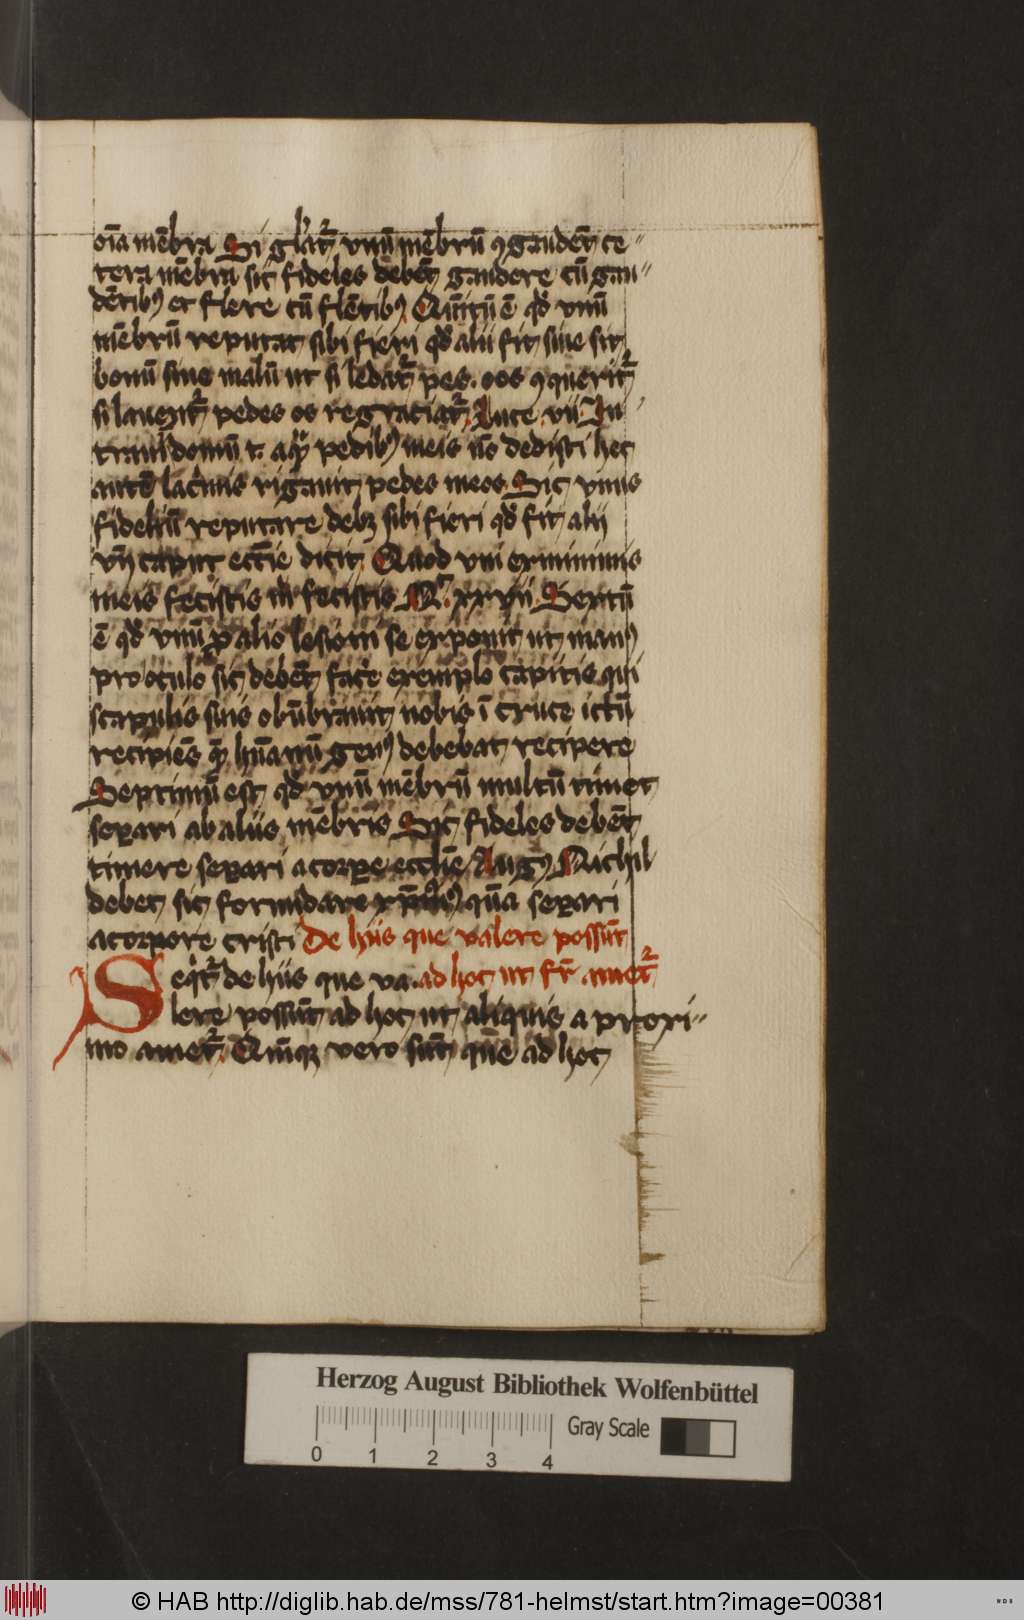 oīa mēbra Si gl'at᷑ vnū mēbrū ꝯgaudēt ce〃
tera mēbra sic fideles debēt gaudere cū gau〃
dētibꝰ et flere cū flētibꝰ Quītū ē qd̛ vnū
mēbrū reputat sibi fieri qd̛ alii fit siue sit
bonū siue malū ut si ledat᷑ pes. os ꝯquerit᷑
si lauāt᷑ pedes os regraciat᷑. Luce. vii In
traui domū t. aq̄ pedibꝰ meis nō dedisti hec
autē lac̛mis rigauit pedes meos Sic vnus
fideliū reputare debꝫ sibi fieri qd̛ fit alii
vn̄ caput ecc̄ie dicit Quod vni ex minimis
meis fecistis m̄ fecistis M̄. xxvii. Sextū
ē qd̛ vnū ꝑ alio lesioni se exponit ut manꝰ
pro oculo sic debēt fac̛e exemplo capitis qui
scapulis suis obūbrauit nobis ī cruce ictū
recipiēs q̄ hūanū genꝰ debebat recipere
Septimū est qd̛ vnū mēbrū multū timet
seꝑari ab aliis mēbris Sic fideles debēt
timere seꝑari a corꝑe eccl̄ie Augꝰ Nichil
debet sic formidare xp̄ianꝰ quā seꝑari
a corpore cristi De hiis que valere possūt
Seq̛t᷑ de hiis que va. ad hoc ut fr̄ amet᷑
lere possūt ad hoc ut aliquis a proxi〃
mo amet᷑. Quīqꝫ vero sūt que ad hoc
Herzog August Bibliothek Wolfenbüttel
Gray Scale
0 1 2 3 4
© HAB http://diglib.hab.de/mss/781-helmst/start.htm?image=00381